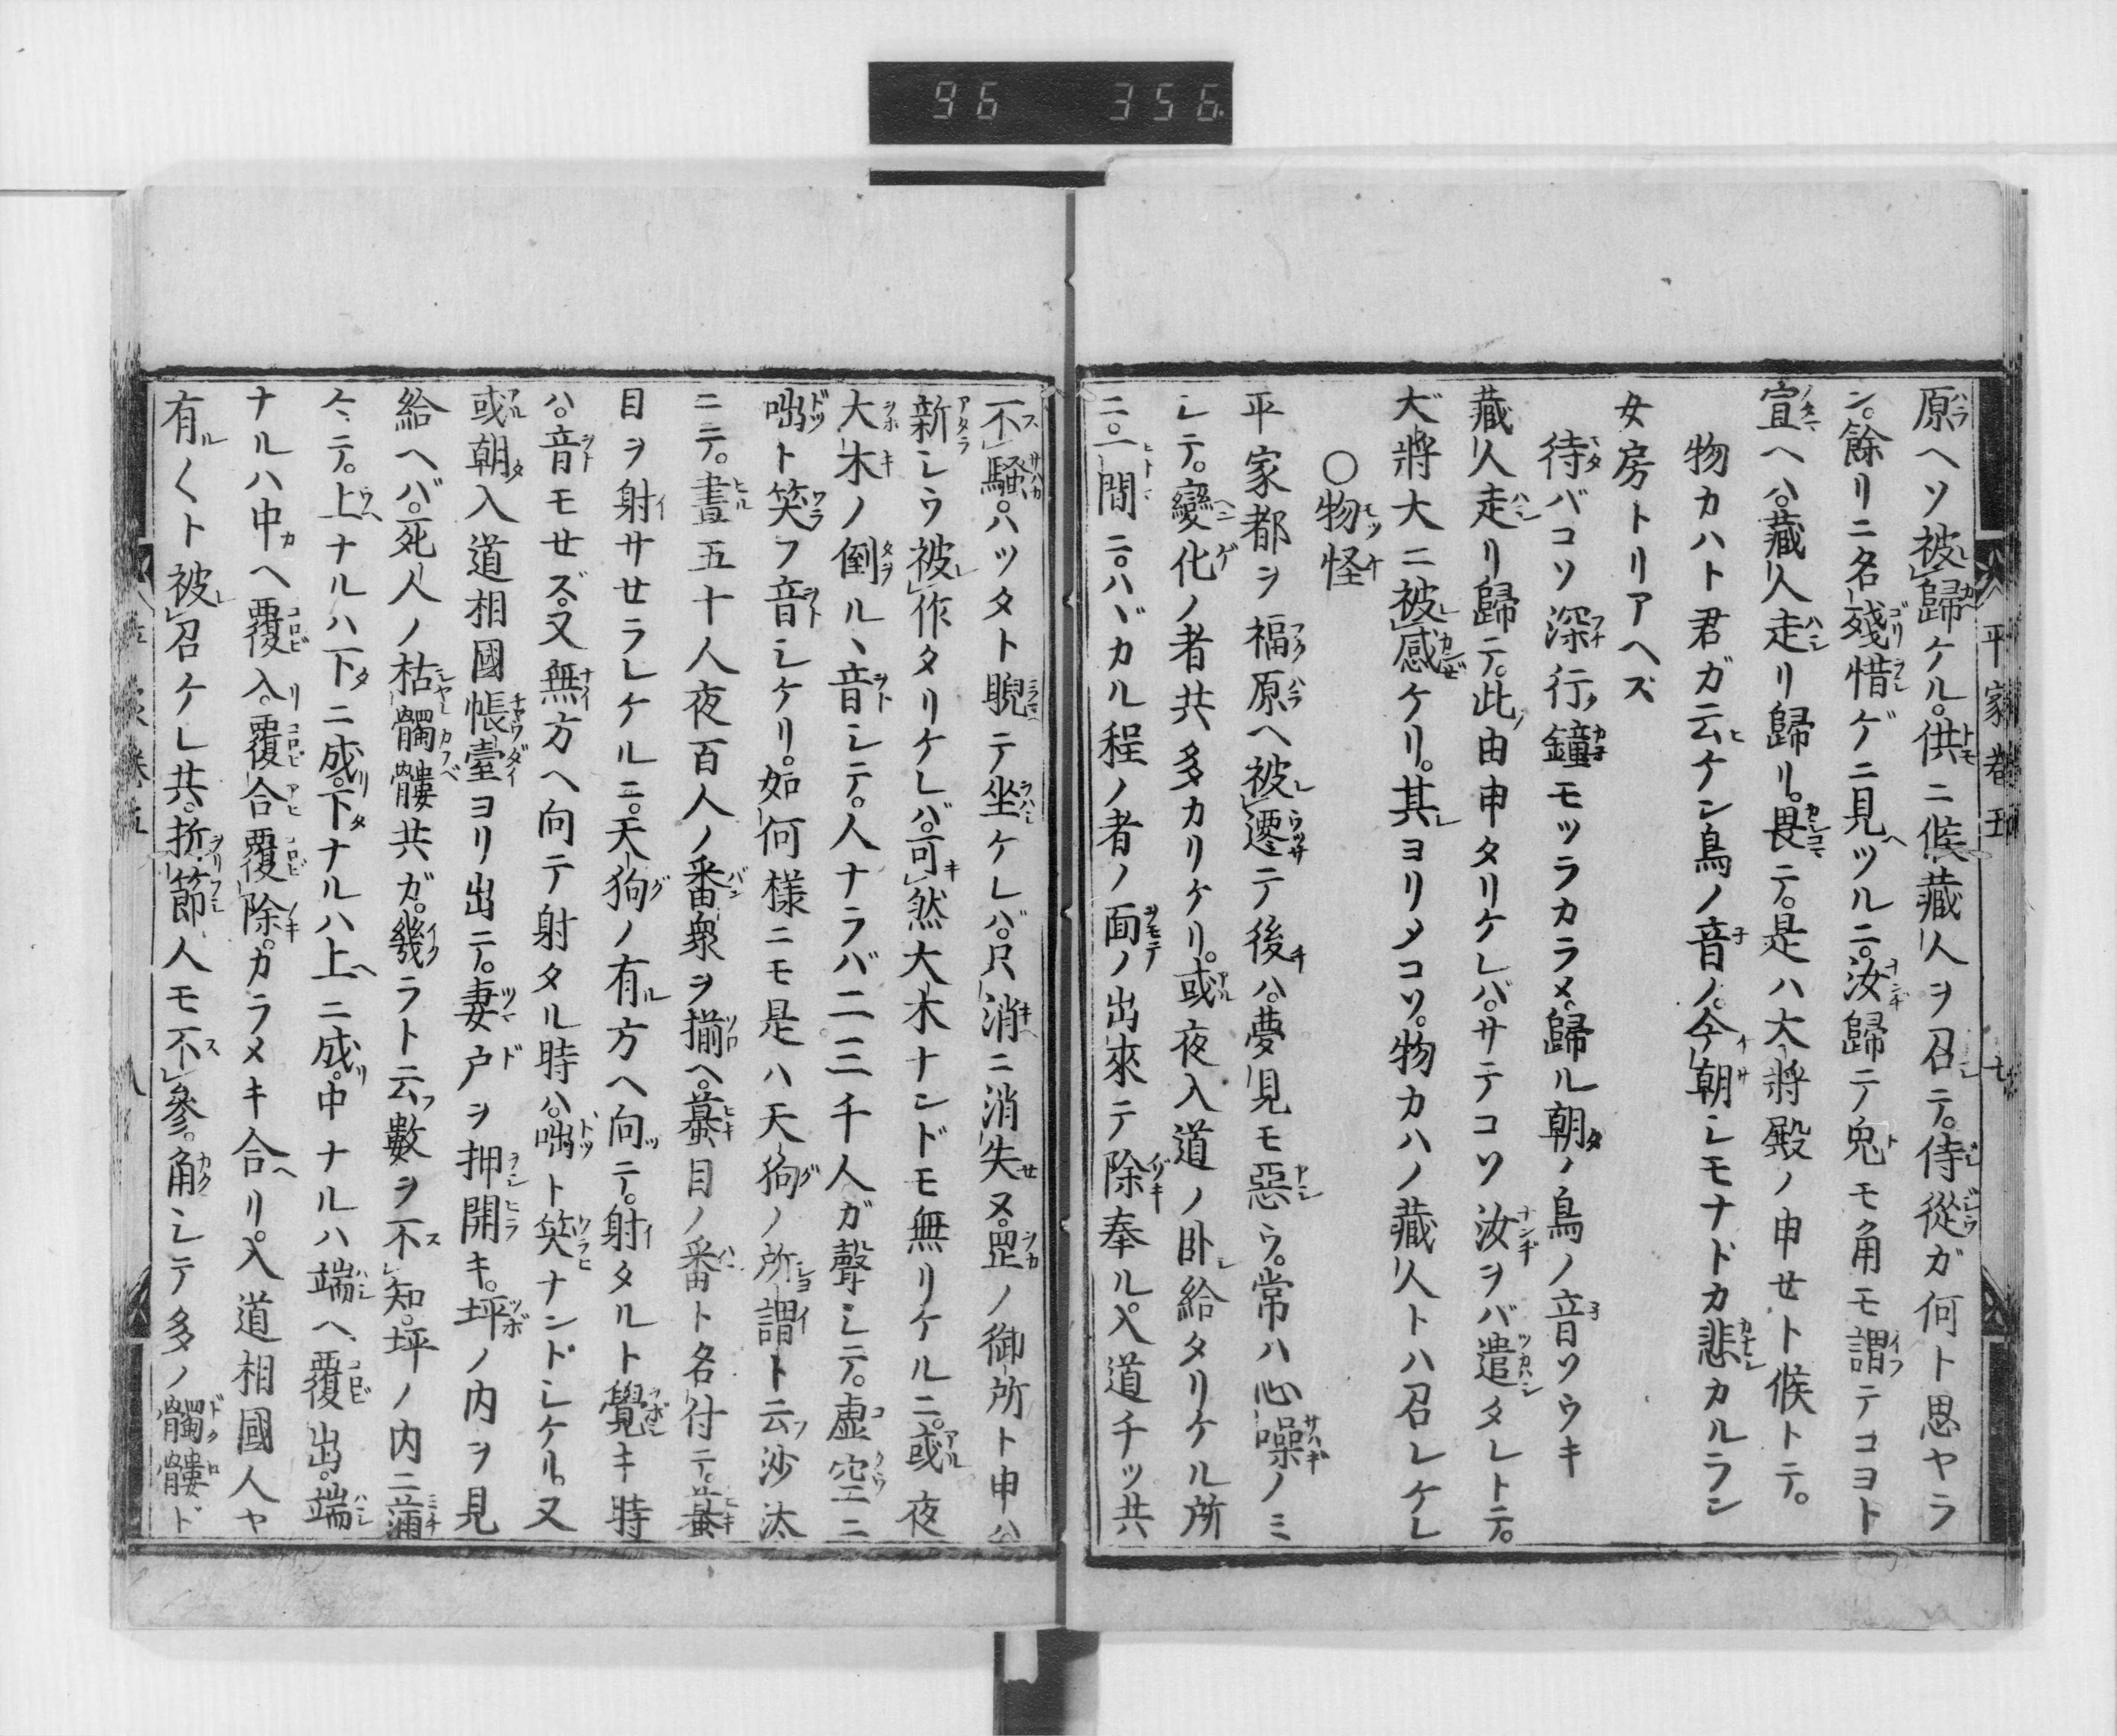 96 356
平家卷五 七
原ヘソ被歸ケル。供ニ候藏人ヲ召テ。侍從ガ何ト思ヤラ
ン。餘リニ名殘惜ゲニ見ヘツルニ。汝歸テ兔モ角モ謂テコヨト
宣ヘハ。藏人走リ歸リ。畏テ。是ハ大將殿ノ申セト候トテ。
物カハト君ガ云ケン鳥ノ音ノ。今朝シモナドカ悲カルラン
女房トリアヘズ
待バコソ深行鐘モツラカラメ。歸ル朝ノ鳥ノ音ソウキ
藏人走リ歸テ。此由申タリケレバ。サテコソ汝ヲバ遣タレトテ。
大將大ニ被感ケリ。其ヨリメコソ。物カハノ藏人トハ召レケレ
〇物怪
平家都ヲ福原ヘ被遷テ後ハ。夢見モ惡ウ。常ハ心噪ノミ
シテ。變化ノ者共多カリケリ。或夜入道ノ卧給タリケル所
ニ。一間ニハヾカル程ノ者ノ面ノ出來テ除奉ル。入道チッ共
不騷。ハツタト睨テ坐ケレバ。只消ニ消失ヌ。罡ノ御所ト申ハ
新シウ被作タリケレバ。可然大木ナンドモ無リケルニ。或夜
大木ノ倒ル丶音シテ。人ナラバ二三千人ガ聲シテ。虛空ニ
咄ト笑フ音シケリ。如何樣ニモ是ハ天狗ノ所謂ト云沙汰
ニテ。晝五十人夜百人ノ番衆ヲ揃ヘ。蟇目ノ番ト名付テ。蟇
目ヲ射サセラレケルニ。天狗ノ有方ヘ向テ。射タルト覺キ時
ハ。音モセズ。又無方ヘ向テ射タル時ハ。咄ト笑ナンドシケリ。又
或朝入道相國帳臺ヨリ出テ。妻戶ヲ押開キ。坪ノ内ヲ見
給ヘバ。死人ノ枯髑髏共ガ。幾ラト云數ヲ不知。坪ノ内ニ蒲
々テ。上ナルハ下ニ成。下ナルハ上ニ成。中ナルハ端ヘ覆出。端
ナルハ中ヘ覆入。覆合覆除。カラメキ合ヘリ。入道相國人ヤ
有〱ト被召ケレ共。折節人モ不參。角シテ多ノ髑髏ド
八